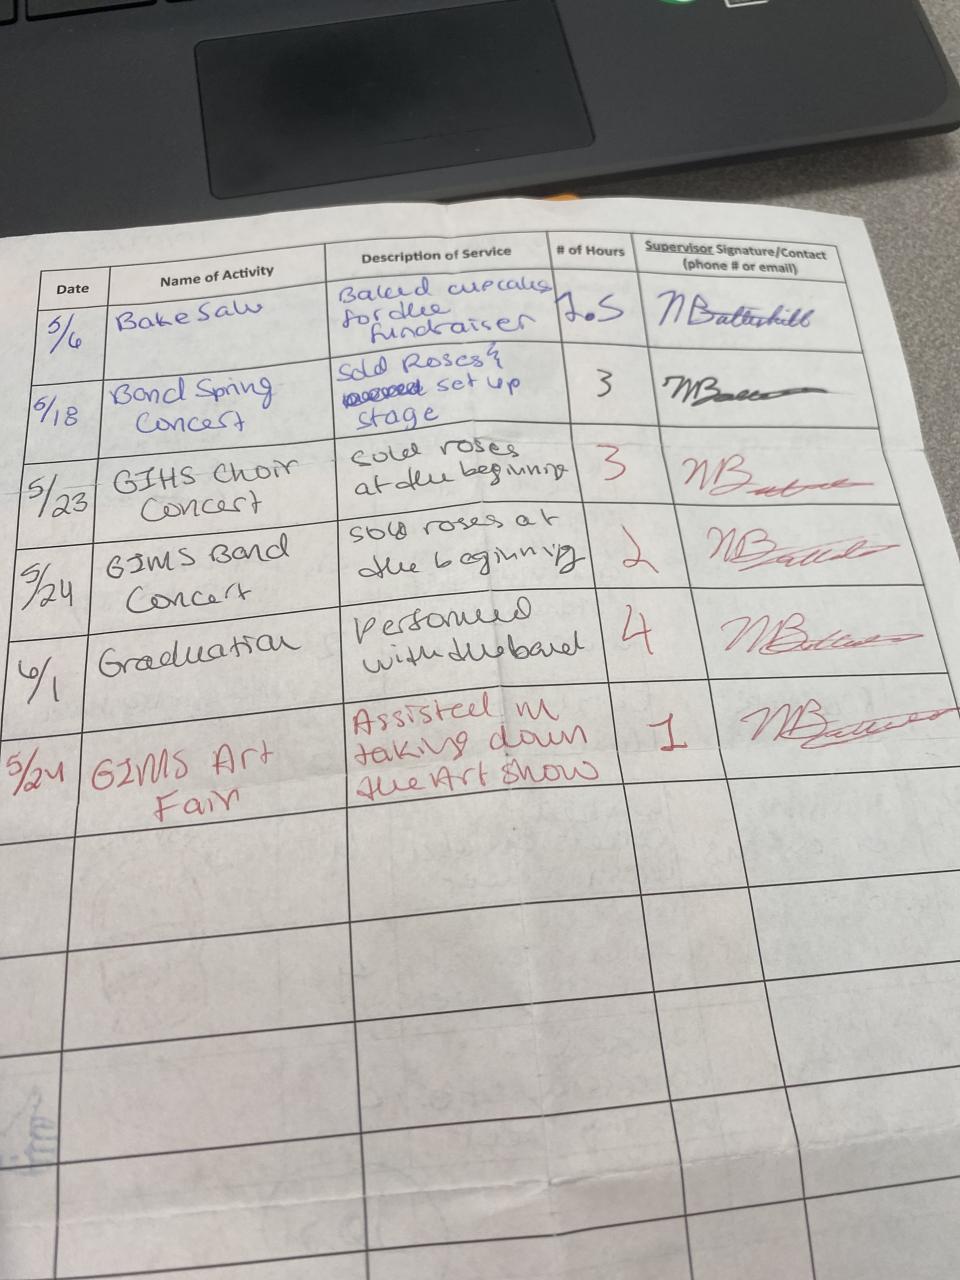 Date Name of Activity Description of Service # of Hours Supervisor Signature/Contact
(phone # or email)
5/6 Bake Sale Baked cupcakes
for the
fundraiser 1.5 NBattershill
5/18 Band Spring
Concert Sold Roses &
set up
stage 3 NB
5/23 GIHS Choir
Concert Sold roses
at the beginning 3 NB
5/24 GIMS Band
Concert Sold roses at
the beginning 2 NB
6/1 Graduation Performed
with the band 4 NB
5/24 GIMS Art
Fair Assisted in
taking down
the Art Show 1 NB